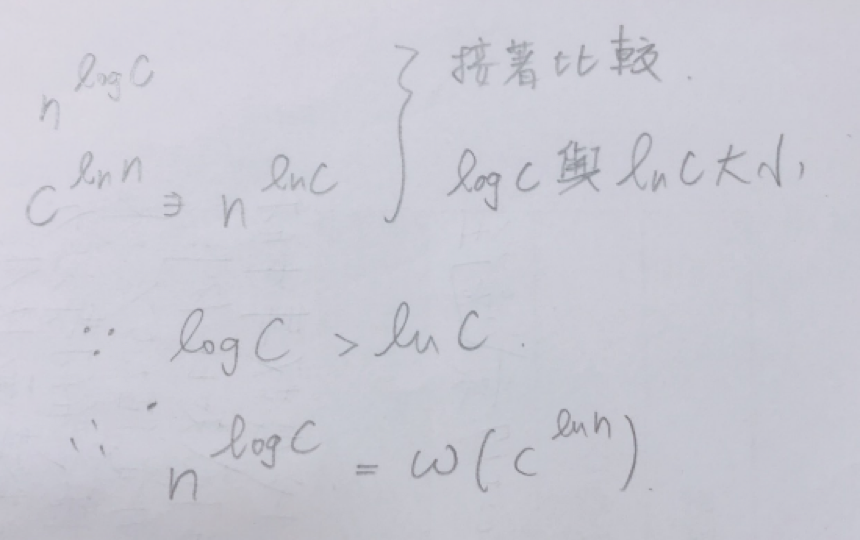 n^{log C}
C^{ln n} ⇒ n^{ln C}
接著比較.
log C 與 ln C 大小,
∵ log C > ln C.
∴ n^{log C} = ω(c^{ln n}).